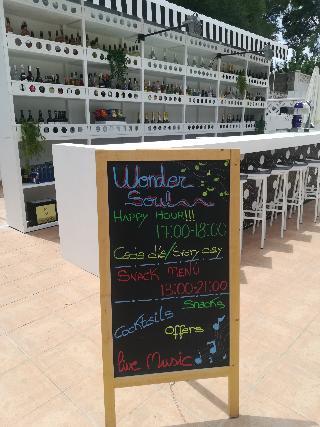 Wonder
Soul
Happy Hour!!!
17:00-18:00
Cada día/Every day
Snack Menu
13:00-21:00
Snacks
Cocktails
Offers
Live Music